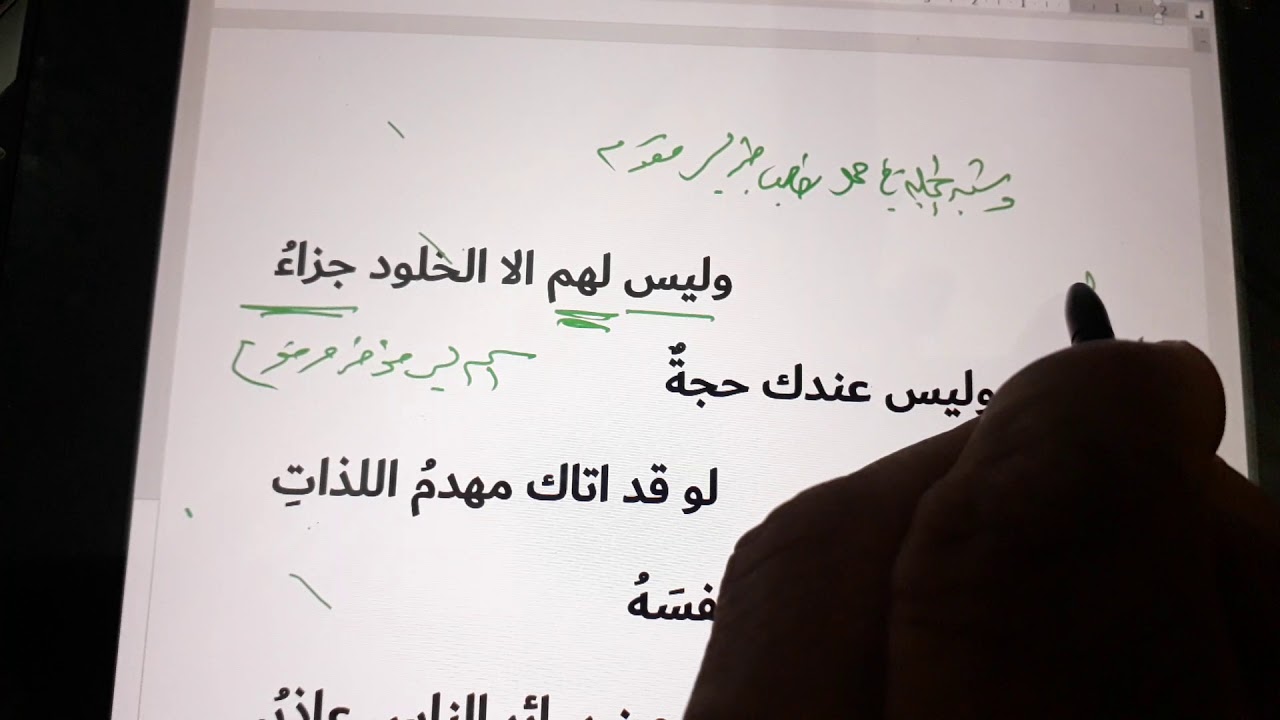 وشبه الجملة في محل نصب خبر ليس مقدم
وليس لهم الا الخلود جزاءُ
اسم ليس مؤخر مرفوع
وليس عندك حجةٌ
لو قد اتاك مهدمُ اللذاتِ
فسَهُ
سائر الناس عاذرُ